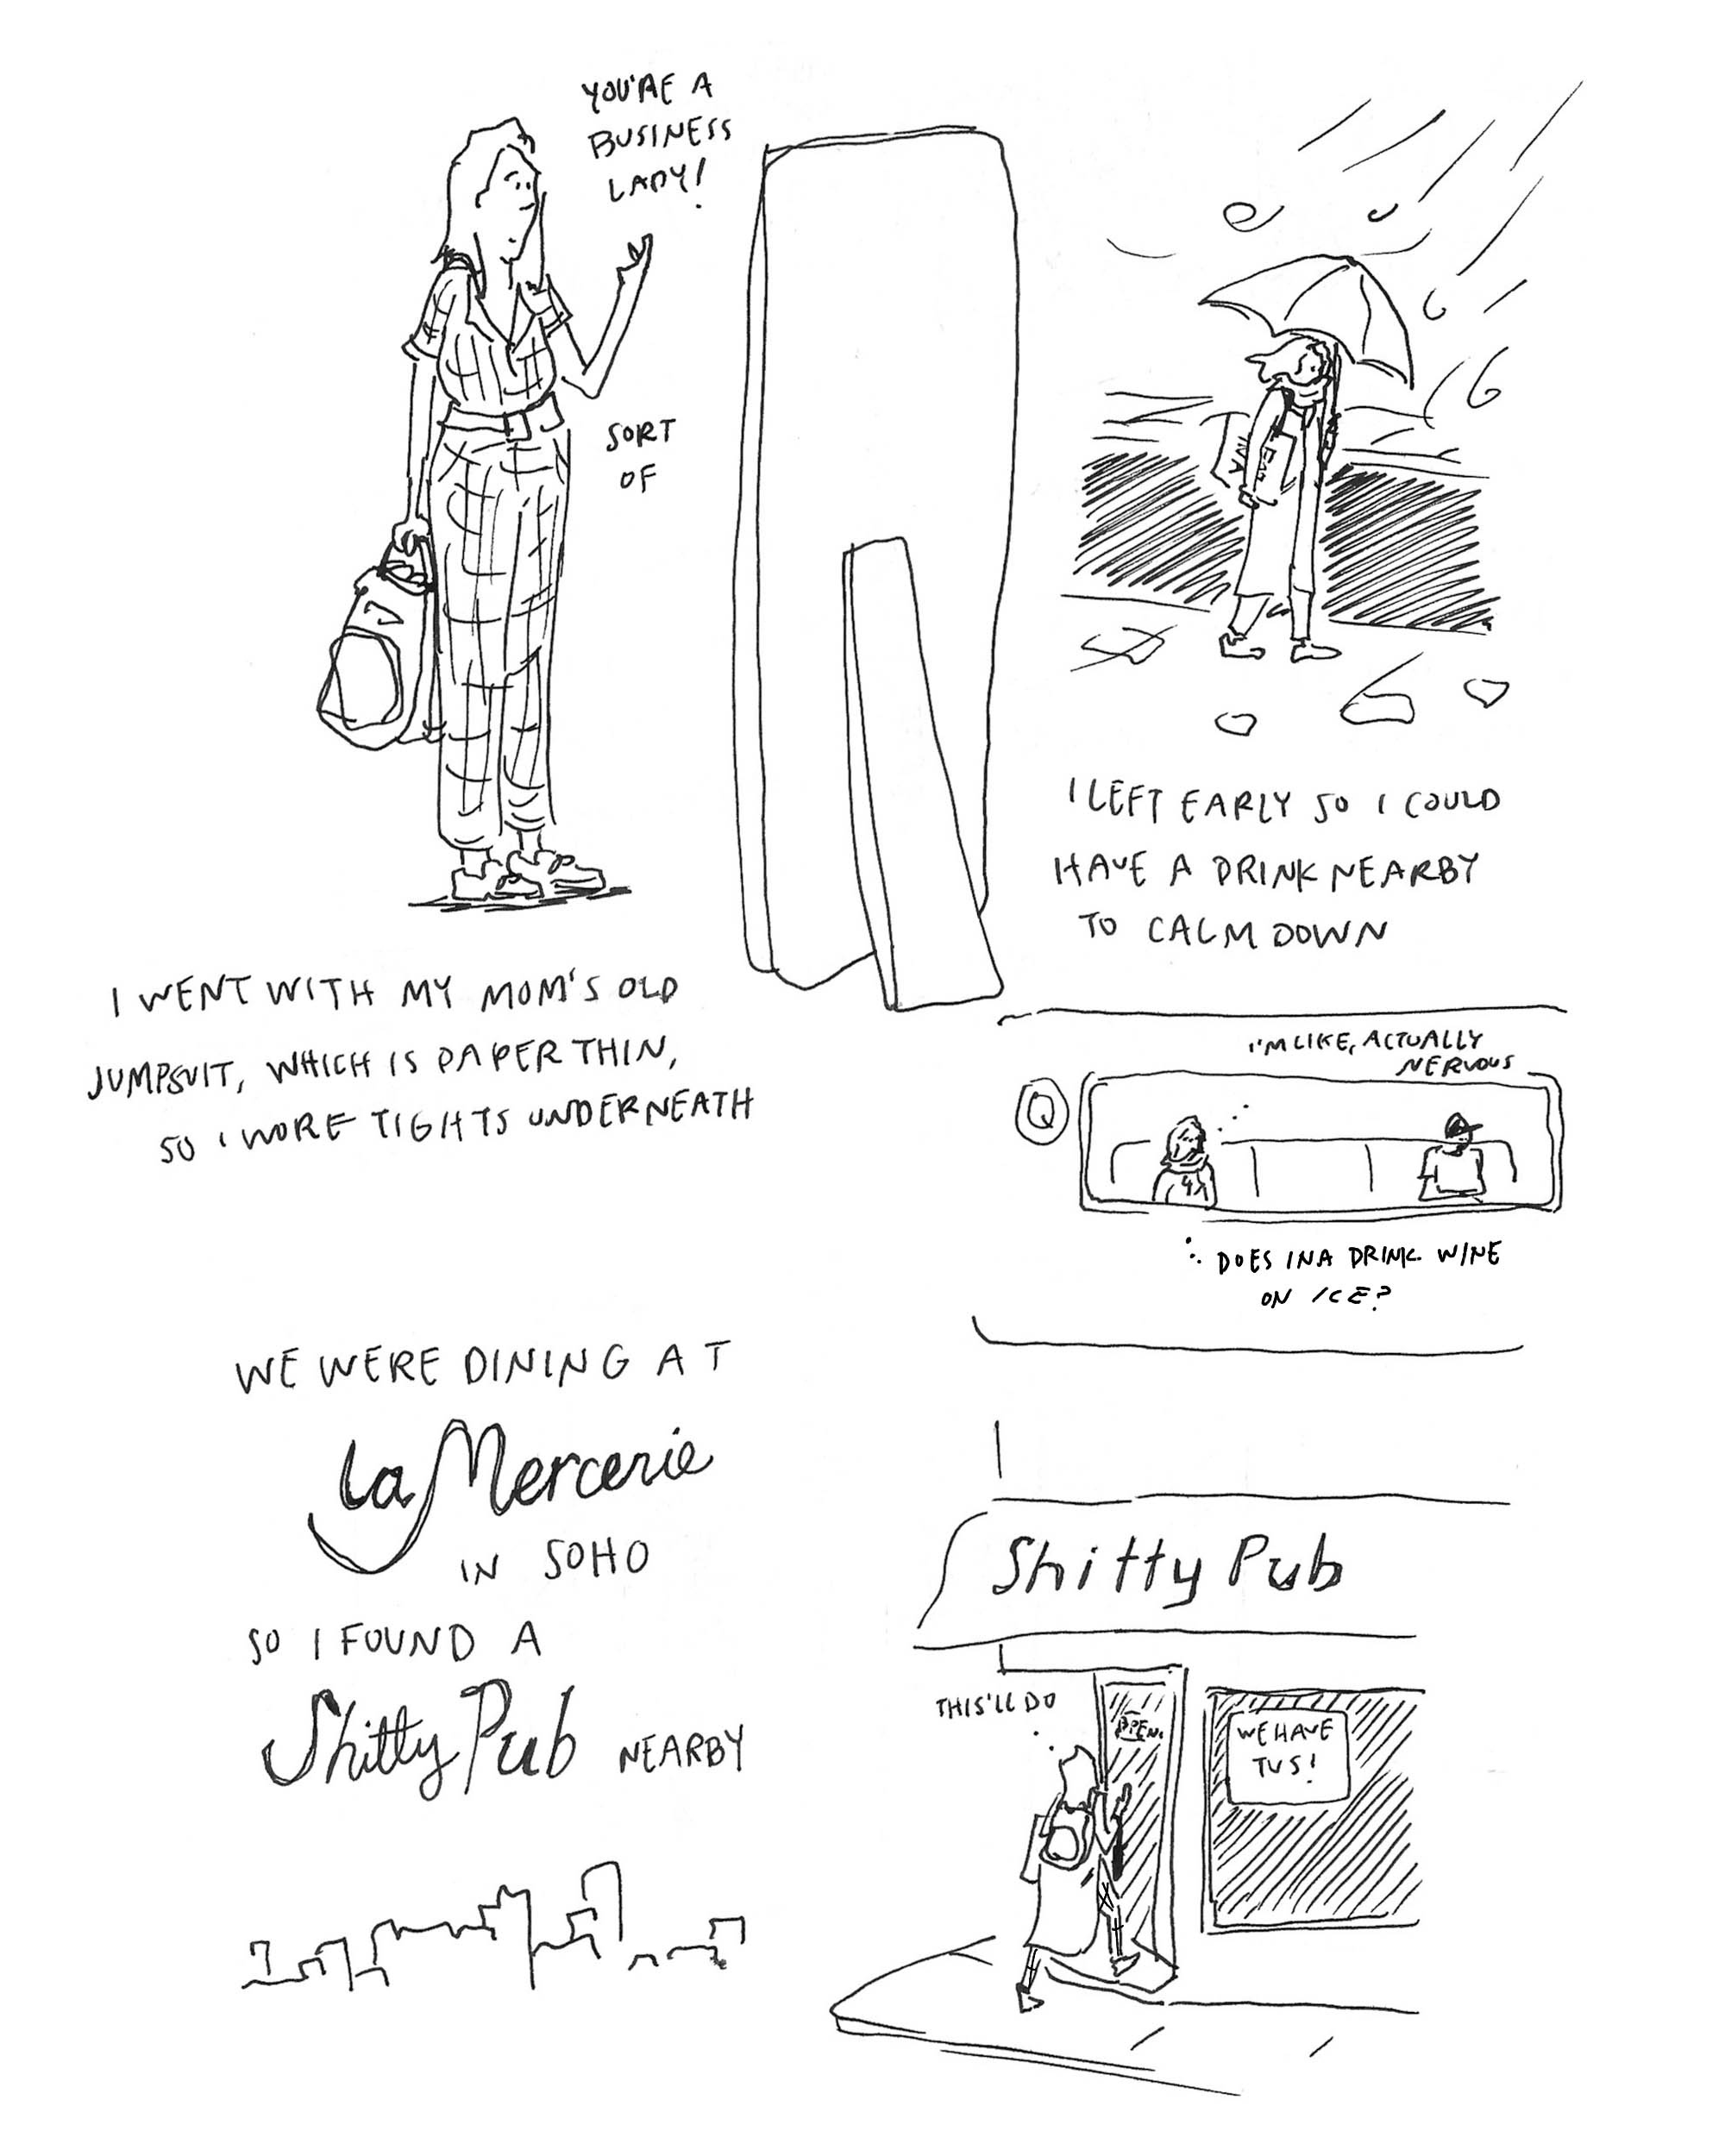 YOU'RE A
BUSINESS
LADY!
SORT
OF
I WENT WITH MY MOM'S OLD
JUMPSUIT, WHICH IS PAPER THIN,
SO I WORE TIGHTS UNDERNEATH
I LEFT EARLY SO I COULD
HAVE A DRINK NEARBY
TO CALM DOWN
I'M LIKE, ACTUALLY
NERVOUS
Q
DOES INA DRINK WINE
ON ICE?
WE WERE DINING AT
La Mercerie
IN SOHO
SO I FOUND A
Shitty Pub NEARBY
Shitty Pub
THIS'LL DO
OPEN
WE HAVE
TVS!